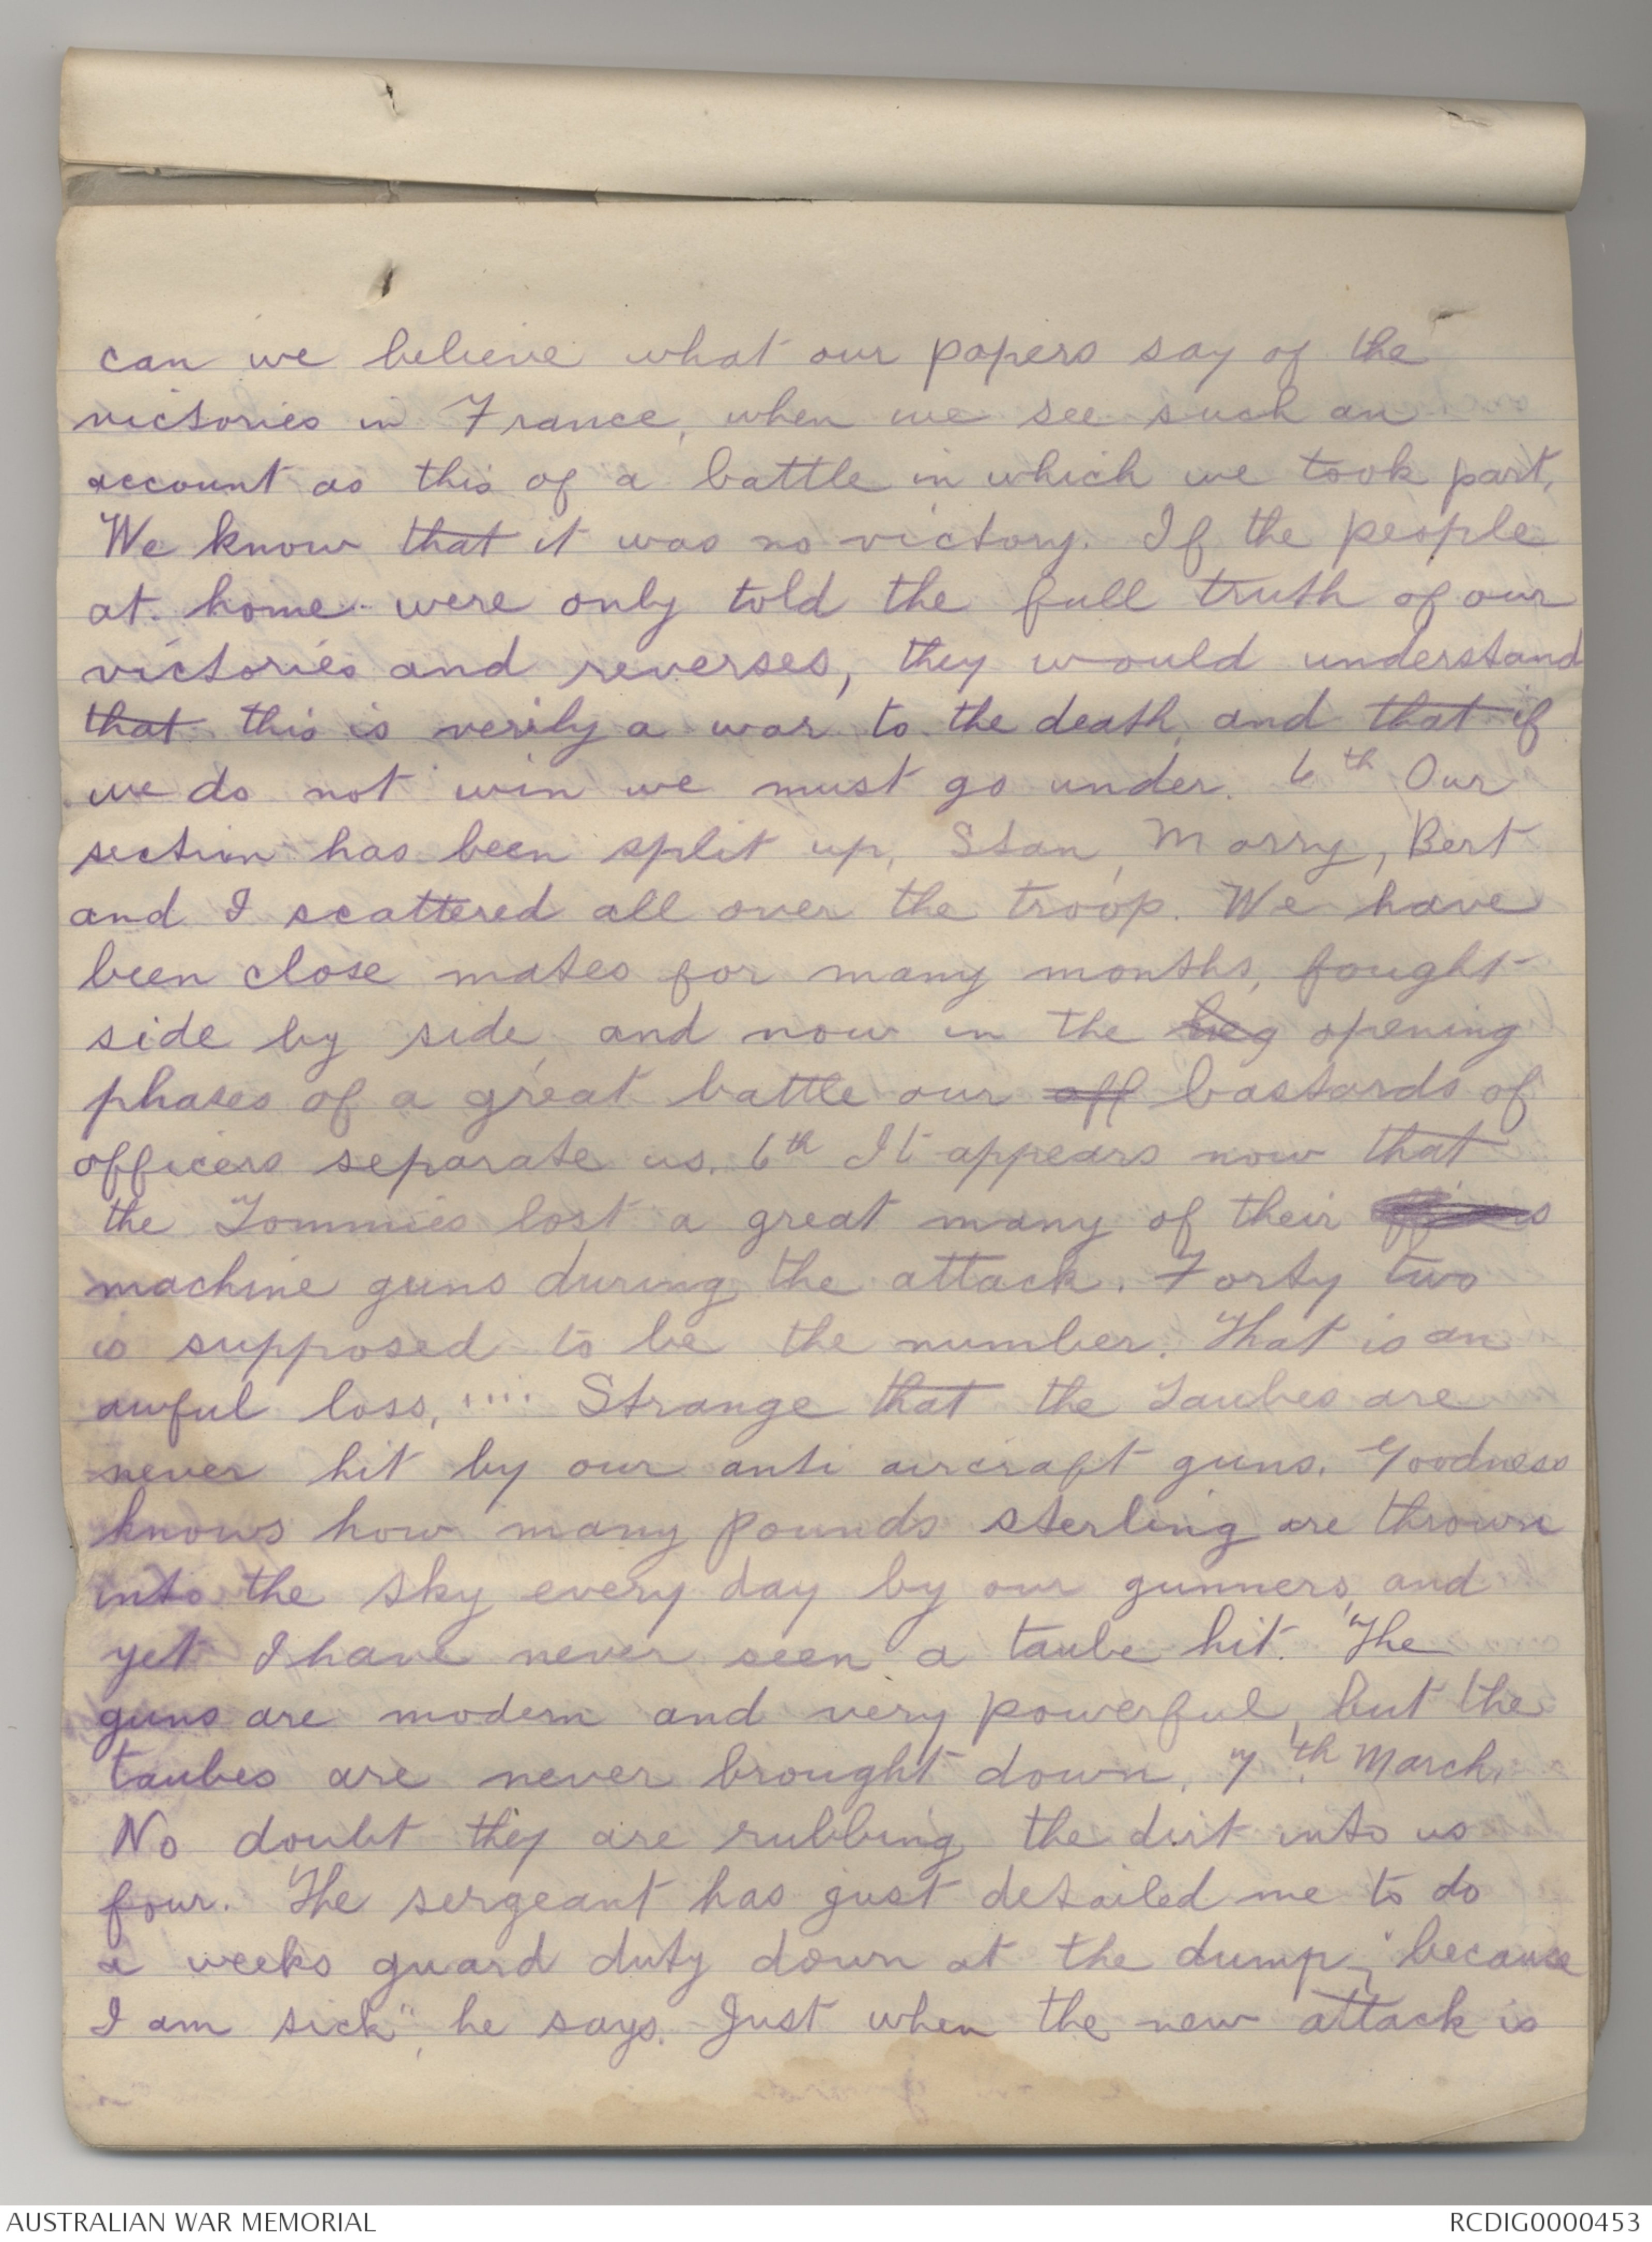 can we believe what our papers say of the
victories in France, when we see such an
account as this of a battle in which we took part.
We know that it was no victory. If the people
at home were only told the full truth of our
victories and reverses, they would understand
that this is verily a war to the death, and that if
we do not win we must go under. 6th Our
section has been split up, Stan, Morry, Bert
and I scattered all over the troop. We have
been close mates for many months, fought
side by side, and now in the beg opening
phases of a great battle our off bastards of
officers separate us. 6th It appears now that
the Tommies lost a great many of their
machine guns during the attack. Forty two
is supposed to be the number. That is an
awful loss, .... Strange that the Taubes are
never hit by our anti aircraft guns. Goodness
knows how many pounds sterling are thrown
into the sky every day by our gunners, and
yet I have never seen a taube hit. The
guns are modern and very powerful, but the
taubes are never brought down. 7th March.
No doubt they are rubbing the dirt into us
four. The sergeant has just detailed me to do
a weeks guard duty down at the dump, "because
I am sick", he says. Just when the new attack is
AUSTRALIAN WAR MEMORIAL
RCDIG0000453